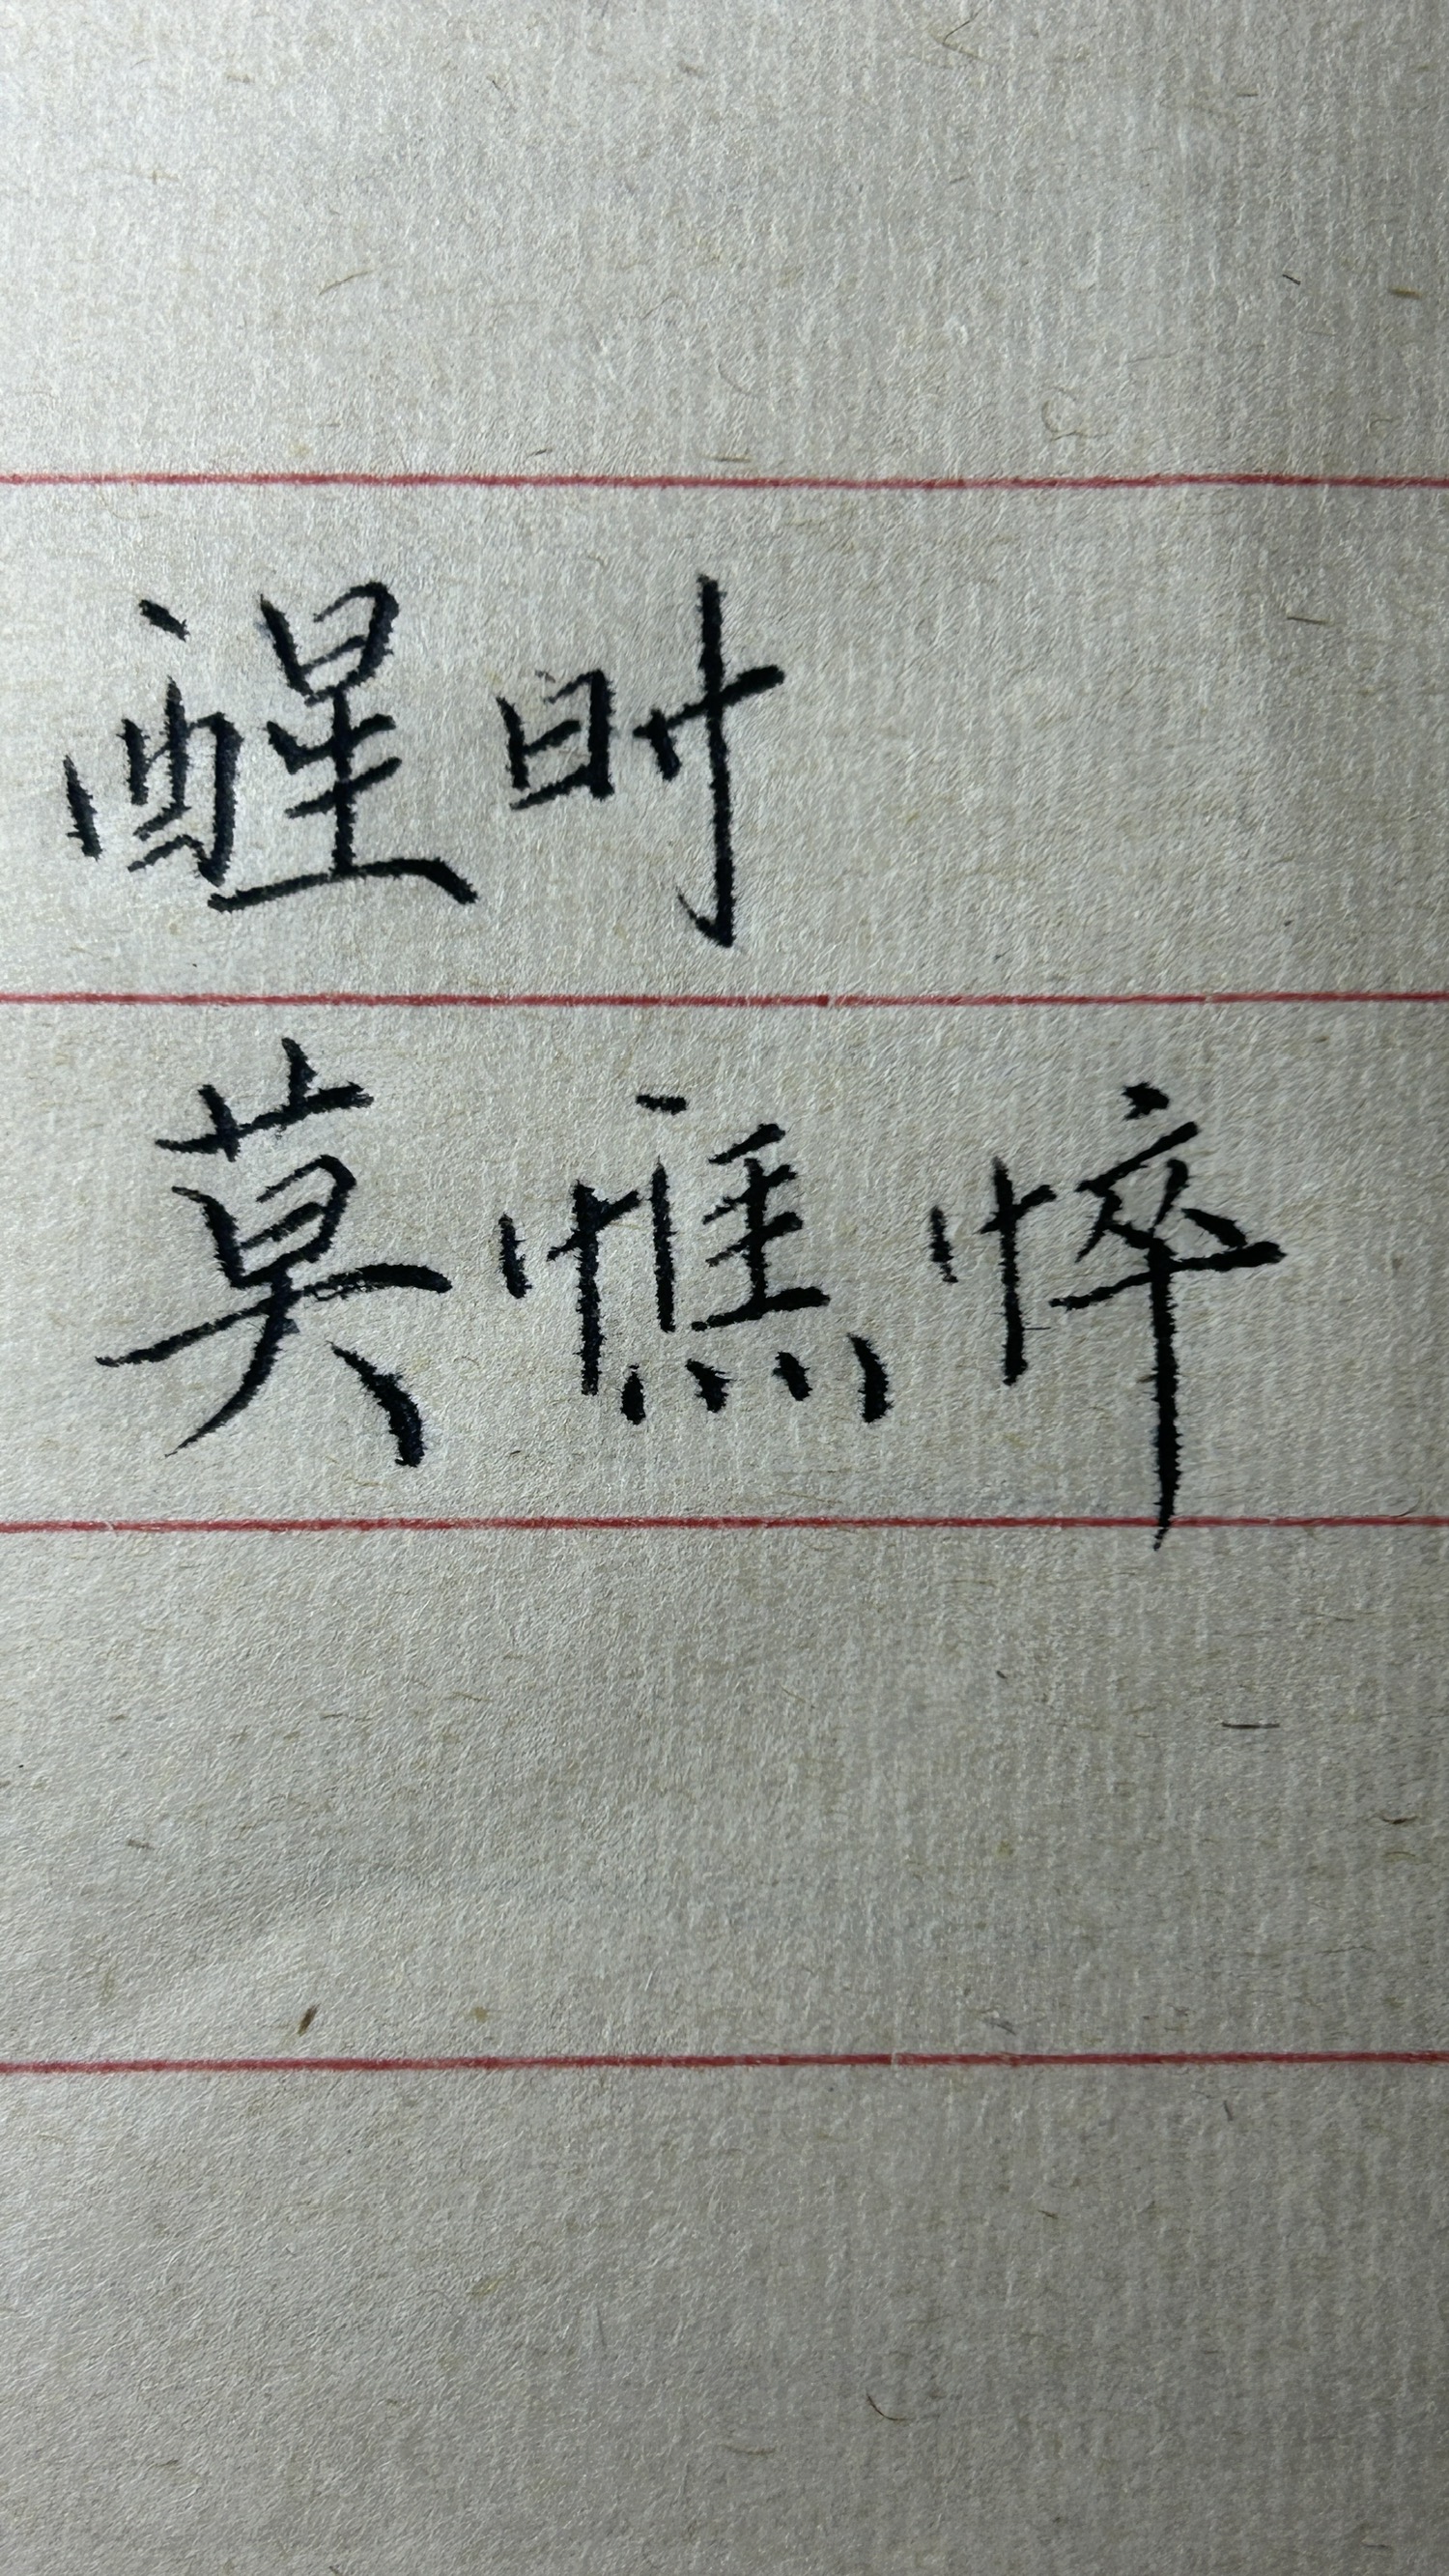 醒时
莫憔悴